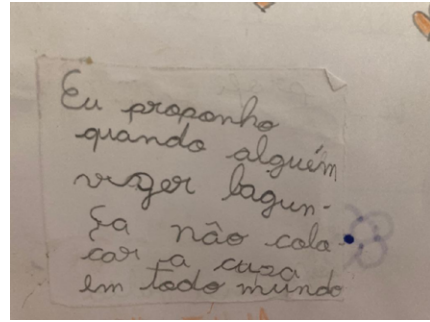 Eu proponho
quando alguém
vizer bagun-
ça não colo-
car a cuza
em todo mundo